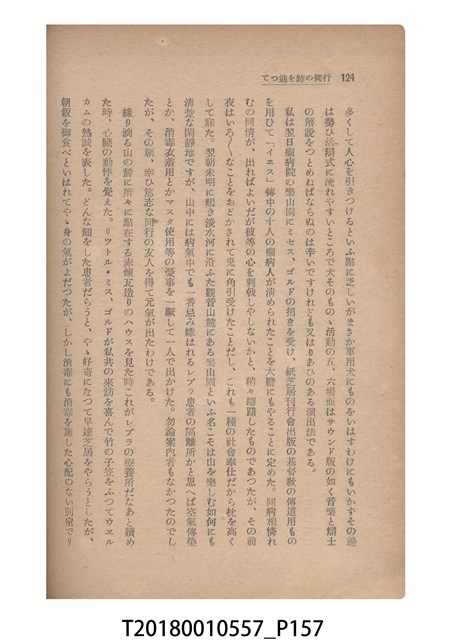 行脚の跡を追つて
124
多くして人心を引きつけるといふ點に乏しいがまさか軍用犬にものをいはすわけにもいかずその邊
は勢ひ活辯式に流れやすいところで犬そのものゝ活動の五、六場面はサウンド版の如く音樂と辯士
の解説をつとめねばならぬのは辛いですけれども又はりあひのある演出法である。
私は翌日癩病院の樂山園にミセス、ゴルドの招きを受け、紙芝居刊行會出版の基督敎の傳道用もの
を用ひて「イエス」傳中の十人の癩病人が淸められたことを大膽にもやることに定めた。同病相憐れ
むの同情が、出ればよいだが彼等の心を刺戟しやしないかと、稍々躊躇したものであつたが、その前
夜はいろ〳〵なことをおどかされて鬼に角引受けたことだし、これも一種の社會奉仕だから枕を高く
して寐た。翌朝未明に起き淡水河に沿ふた觀音山麓にある樂山園といふ名こそは山を樂しむ如何にも
淸楚な閑靜地ですが、山中には病氣中でも一番忌み嫌はれるレプラ患者の隔離所かと思へば空氣傳染
とか、消毒衣着用とかマスク使用等の憂事を一蹴して一人で出かけた。勿論案內者もなかつたのでし
たが、その朝、幸ひ篤志な同行の友人を得て元氣が出たわけである。
綠り滴る山の麓に所々に點在する赤煉瓦造りのハウスを見た時これがレプラの療養所だなあと讀め
た時、心臟の動悸を覺えた。リツトル・ミス、ゴルドが私共の來訪を喜んで竹の子笠をふつてウエル
カムの熱誠を表した。どんな顏をした患者だらうと、やゝ好奇になつて早速芝居をやらうとしたが、
朝飯を御食べといはれてやゝ身の氣がよだつたが、しかし消毒にも消毒を施した心配のない別室でリ
T20180010557_P157